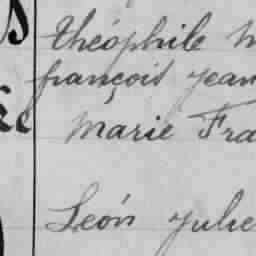 théophile
françois jean
Marie Fra
León Julie